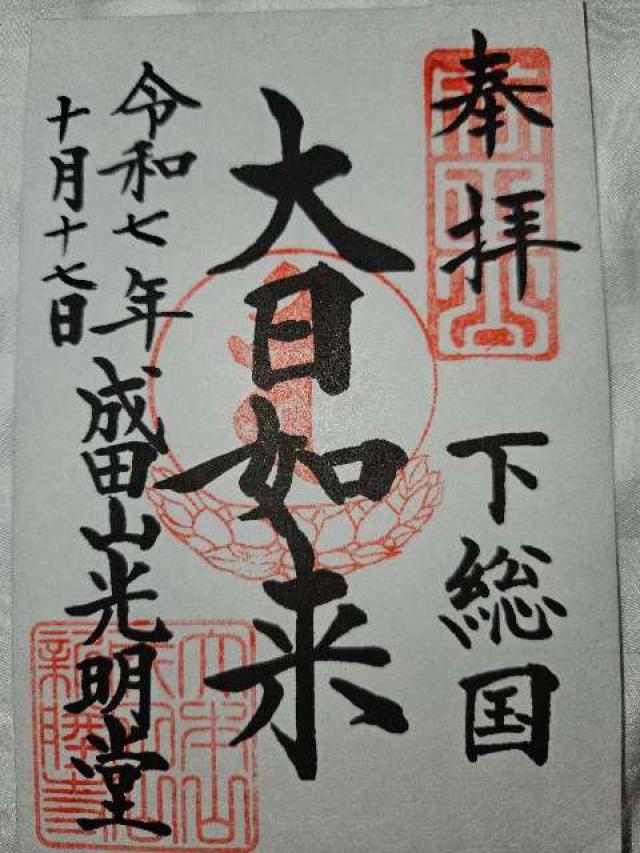 奉拝
下総国
大日如来
令和七年
十月十七日
成田山光明堂